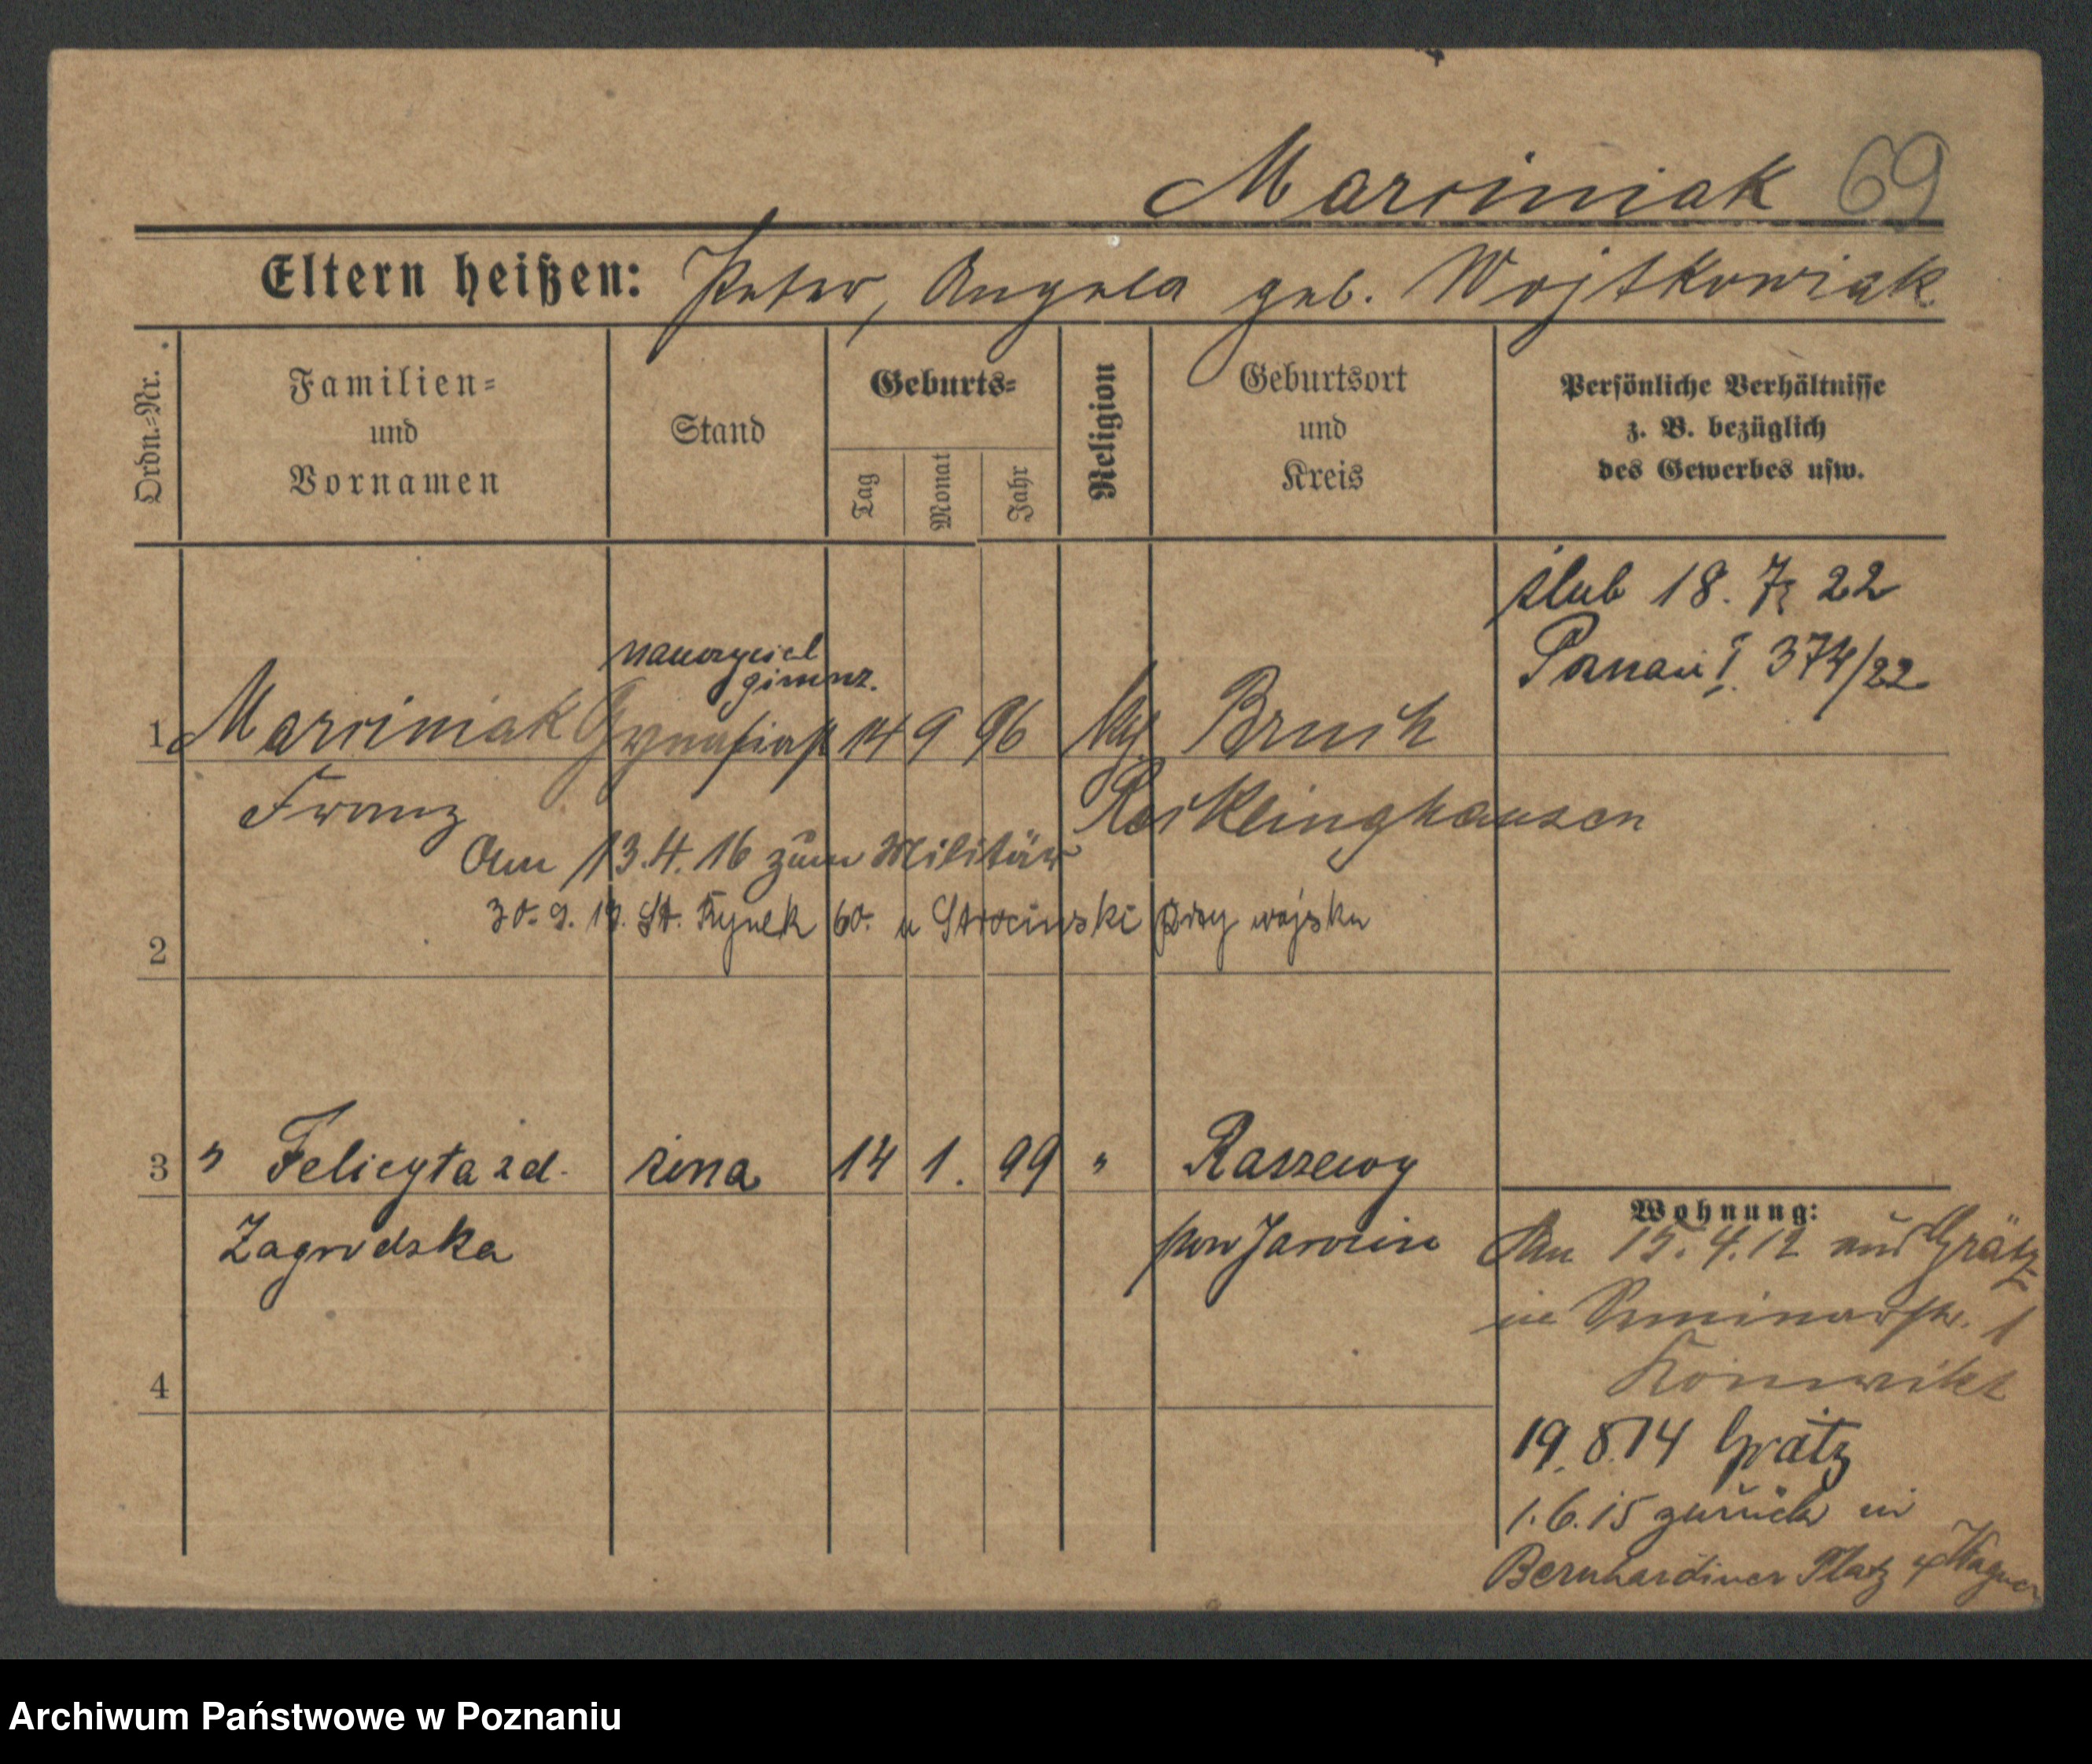 Marciniak 69
Eltern heißen: Peter, Angela geb. Wojtkowiak
Ordn.-Nr.
Familien-
und
Vornamen
Stand
Geburts-
Tag
Monat
Jahr
Religion
Geburtsort
und
Kreis
Persönliche Verhältnisse
z. B. bezüglich
des Gewerbes usw.
ślub 18. 7. 22
Poznań I. 374/22
nauczyciel
gimnz.
1 Marciniak Gymnasiast 14 9 96 Bruch
Franz Recklinghausen
Am 13.4.16 zum Militär
30. 9. 19. St. Rynek 60. u Strociński przy wojsku
2
3 " Felicyta zd. żona 14 1. 99 " Raszewy
Zagrodzka pow Jarocin
4
Wohnung:
Am 15.4.12 aus Grätz
in Seminarstr. 1
Konvikt
19.8.14 Grätz
1.6.15 zurück in
Bernhardiner Platz 4 Wagner
Archiwum Państwowe w Poznaniu